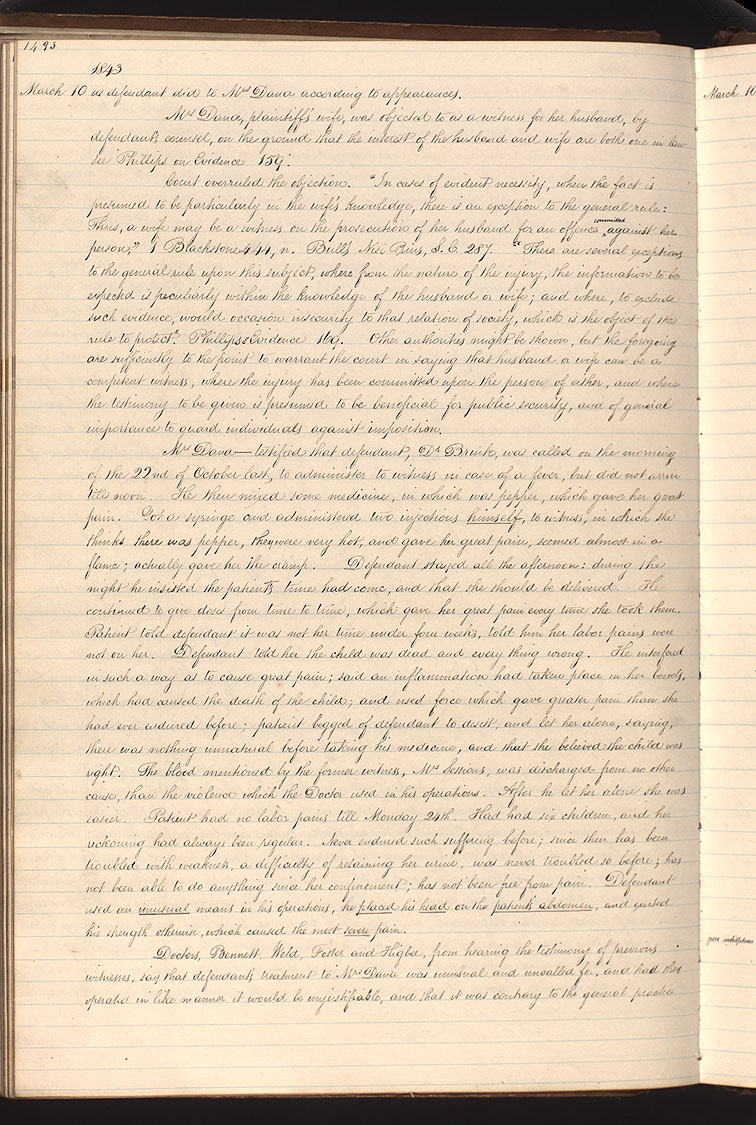 1493
1843
March 10 as defendant did to Mrs Dana according to appearances.
Mrs Dana, plaintiff's wife, was objected to as a witness for her husband, by
defendant's counsel, on the ground that the interest of the husband and wife are both one in law
see Phillips on Evidence 159.
Court overruled the objection. "In cases of evident necessity, when the fact is
presumed to be particularly in the wife's knowledge, there is an exception to the general rule:
Thus, a wife may be a witness on the prosecution of her husband for an offence committed against her
person;" 1 Blackstone 444, n. Bull's Nisi Prius, S. C. 287. "There are several exceptions
to the general rule upon this subject, where from the nature of the injury, the information to be
expected is peculiarly within the knowledge of the husband or wife; and where, to exclude
such evidence, would occasion insecurity to that relation of society, which is the object of the
rule to protect". Phillips Evidence 169. Other authorities might be shown, but the foregoing
are sufficiently to the point to warrant the court in saying that husband or wife can be a
competent witness, where the injury has been committed upon the person of either, and where
the testimony to be given is presumed to be beneficial for public security, and of general
importance to guard individuals against imposition.
Mrs Dana—testified that defendant, Dr Brink, was called on the morning
of the 22nd of October last, to administer to witness in case of a fever, but did not arrive
till noon. He then mixed some medicine, in which was pepper, which gave her great
pain. Got a syringe and administered two injections himself, to witness, in which she
thinks there was pepper, they were very hot, and gave her great pain, seemed almost in a
flame; actually gave her the cramp. Defendant stayed all the afternoon: during the
night he insisted the patient's time had come, and that she should be delivered. He
continued to give doses from time to time, which gave her great pain every time she took them.
Patient told defendant it was not her time under four weeks, told him her labor pains were
not on her. Defendant told her the child was dead and every thing wrong. He interfered
in such a way as to cause great pain; said an inflammation had taken place in her bowels,
which had caused the death of the child; and used force which gave greater pain than she
had ever endured before; patient begged of defendant to desist, and let her alone, saying,
there was nothing unnatural before taking his medicine, and that she believed the child was
right. The blood mentioned by the former witness, Mrs Sessions, was discharged from no other
cause, than the violence which the Doctor used in his operations. After he let her alone she was
easier. Patient had no labor pains till Monday 24th. Had had six children, and her
reckoning had always been regular. Never endured such suffering before; since then has been
troubled with weakness, a difficulty of retaining her urine, was never troubled so before; has
not been able to do anything since her confinement; has not been free from pain. Defendant
used an unusual means in his operations, he placed his head on the patient's abdomen, and exerted
his strength otherwise, which caused the most severe pain.
Doctors, Bennett, Weld, Foster and Higbee, from hearing the testimony of previous
witnesses, say that defendant's treatment to Mrs Dana was unusual and uncalled for, and had they
operated in like manner it would be unjustifiable, and that it was contrary to the general practice
March 10